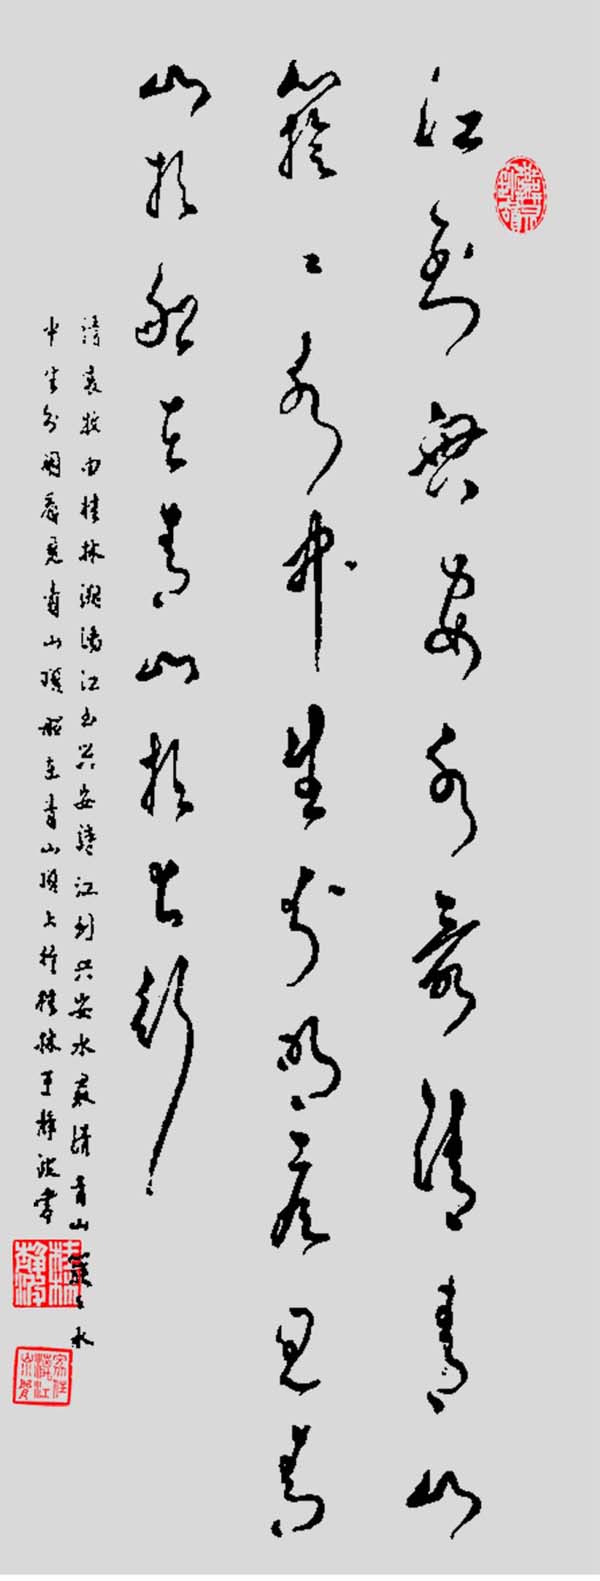 江到興安水最清青山
簇々水中生分明看见青
山顶船在青山顶上行
清袁枚由桂林溯漓江至兴安 江到兴安水最清青山簇々水
中生分明看见青山顶船在青山顶上行桂林王静波书